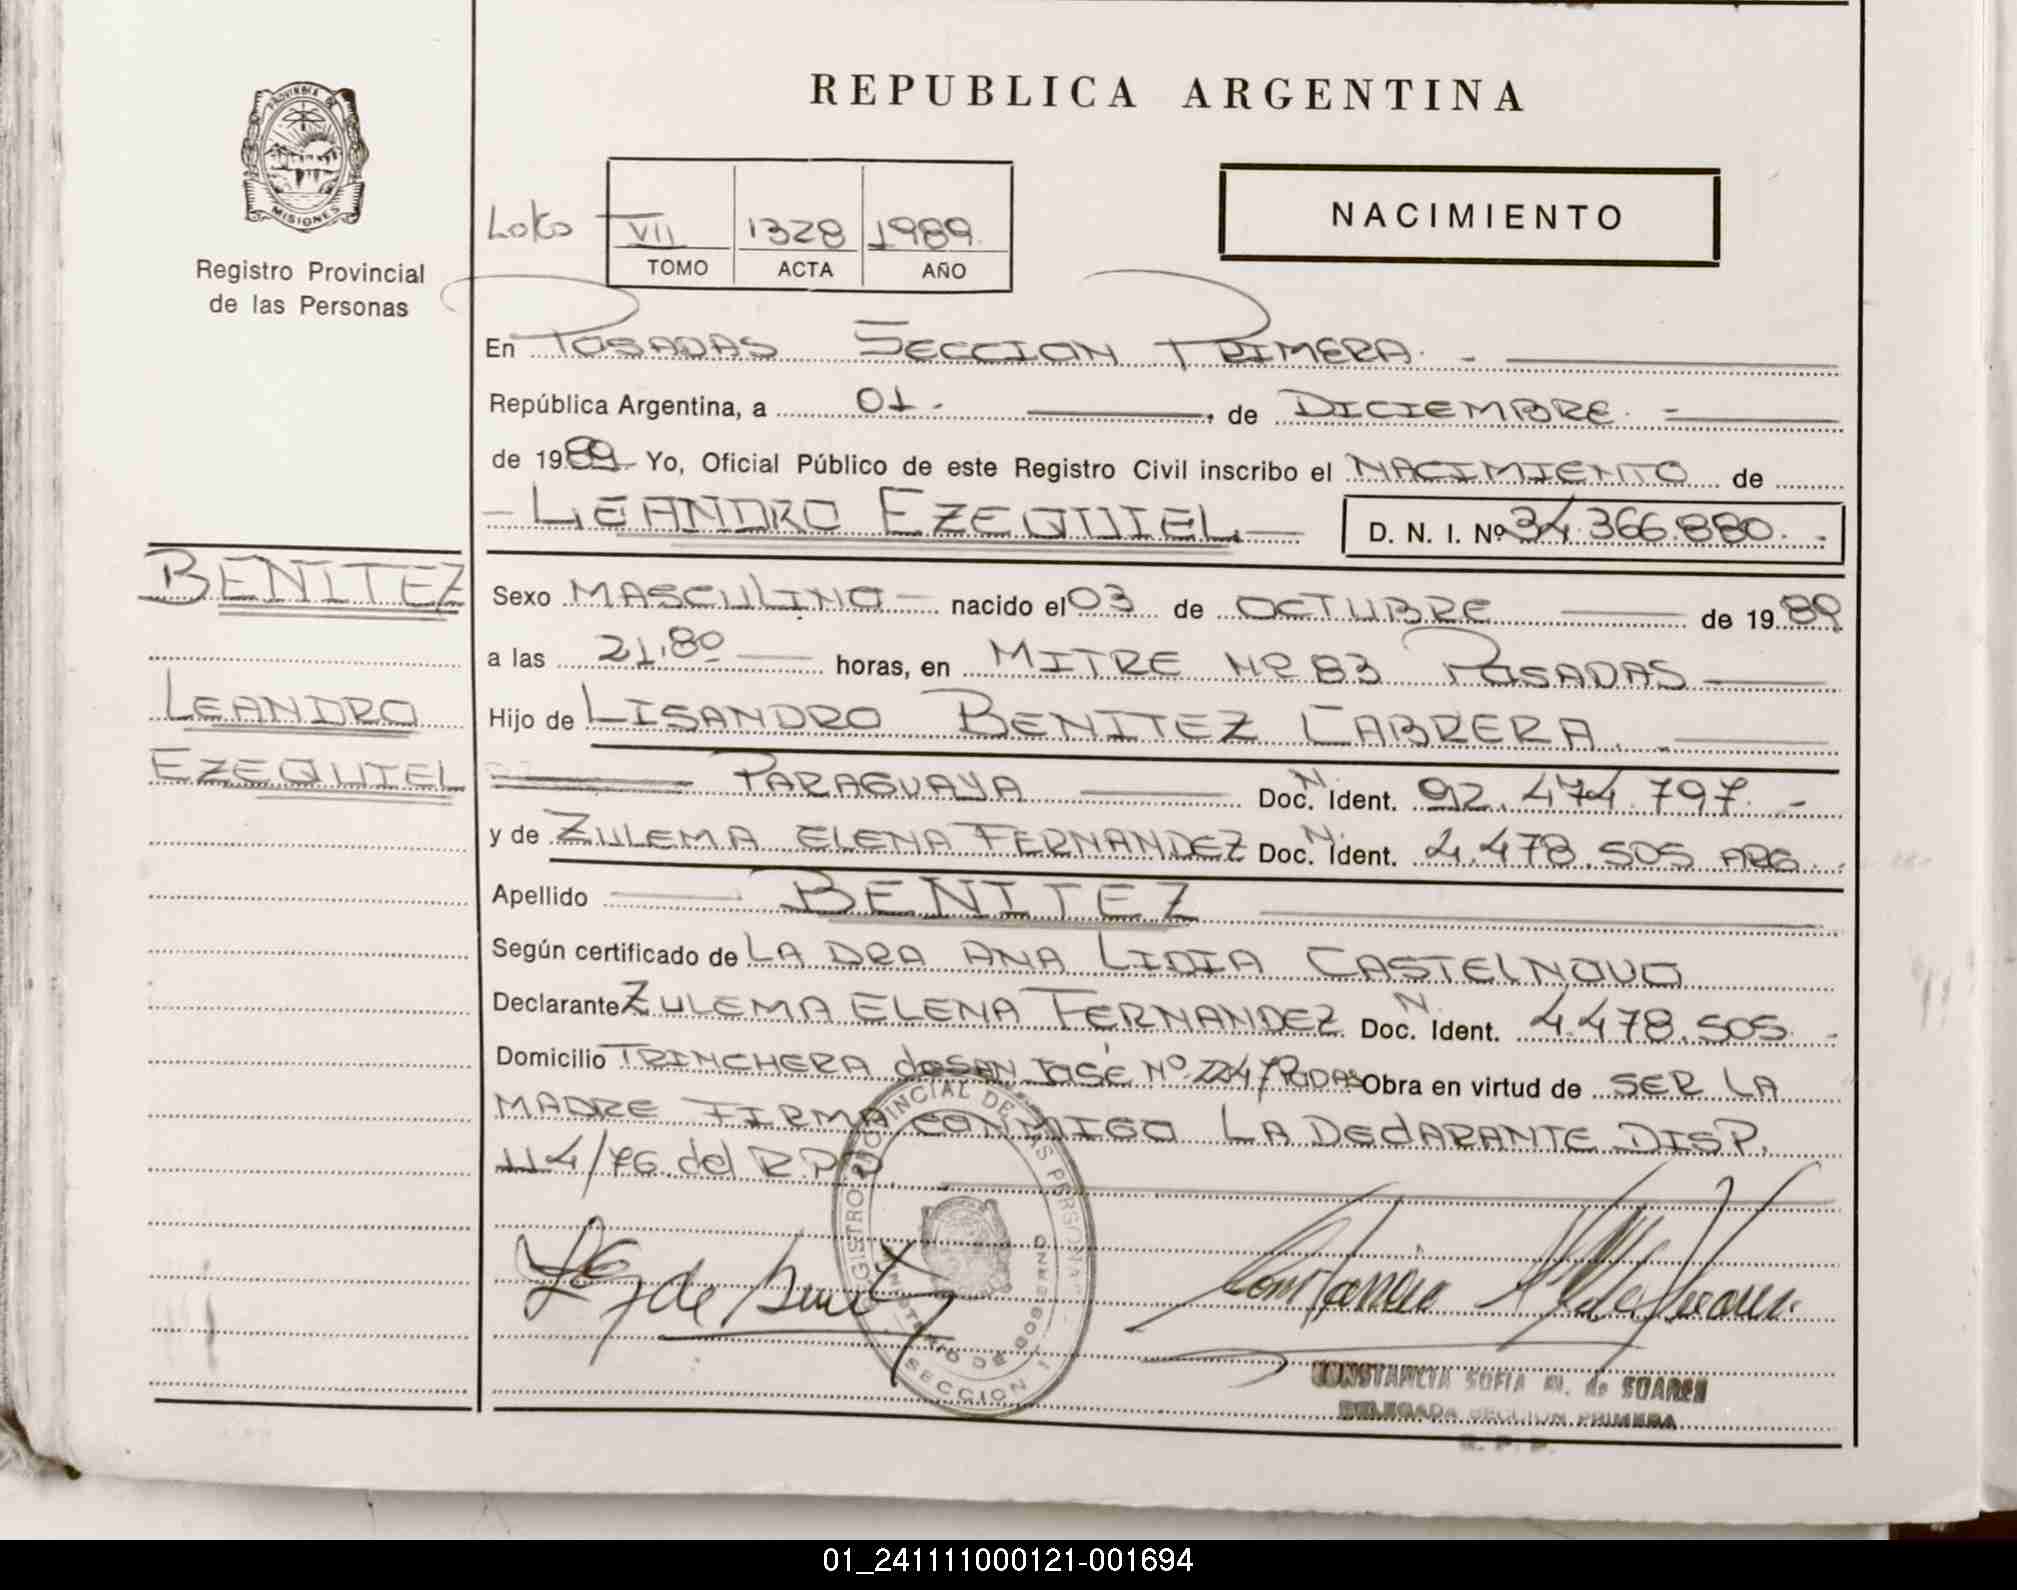 REPUBLICA ARGENTINA
PROVINCIA DE
MISIONES
Registro Provincial
de las Personas
VII 1328 1989
TOMO ACTA AÑO
NACIMIENTO
En POSADAS SECCION PRIMERA. -
República Argentina, a 01. , de DICIEMBRE. -
de 1989 Yo, Oficial Público de este Registro Civil inscribo el NACIMIENTO de
- LEANDRO EZEQUIEL - D. N. I. Nº 34.366.880. -
BENITEZ
LEANDRO
EZEQUIEL
Sexo MASCULINO - nacido el 03 de OCTUBRE de 1989
a las horas, en MITRE Nº 83 POSADAS
Hijo de LISANDRO BENITEZ CABRERA. -
PARAGUAYA Doc. N. Ident. 92.474.797. -
y de ZULEMA ELENA FERNANDEZ Doc. N. Ident. 4.478.505 ARG.
Apellido BENITEZ
Según certificado de LA DRA ANA LIDIA CASTELNOVO
Declarante ZULEMA ELENA FERNANDEZ Doc. N. Ident. 4.478.505. -
Domicilio TRINCHERA de SAN JOSÉ Nº Obra en virtud de SER LA
MADRE FIRMA CONMIGO LA DEClARANTE DISP.
114/76 del R.P.P
REGISTRO PROVINCIAL DE LAS PERSONAS
MINISTERIO DE GOBIERNO
SECCION
CONSTANCIA SOFIA M. de SOARES
DELEGADA SECCION PRIMERA
R. P. P.
01_241111000121-001694